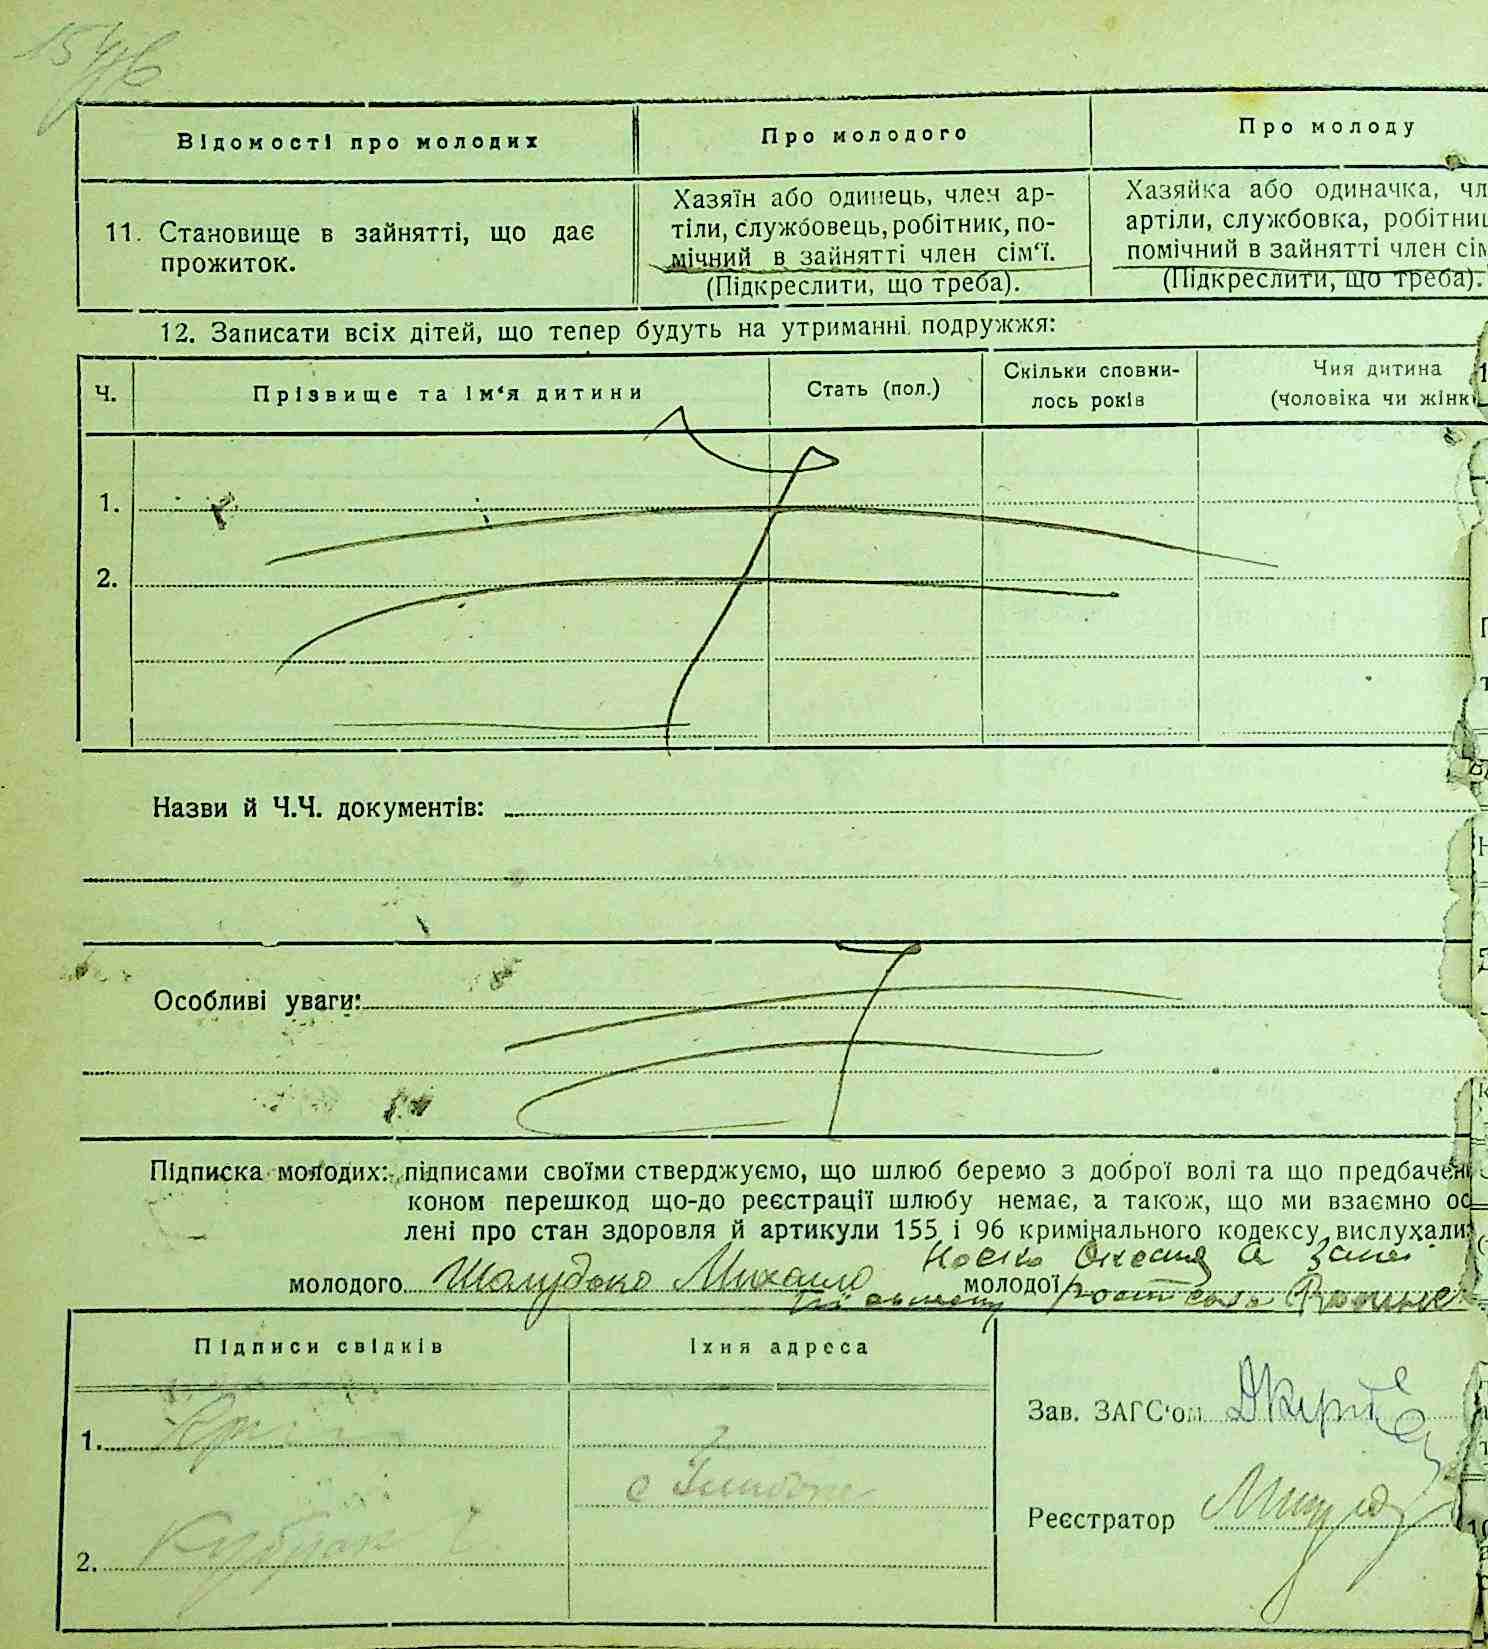 Відомості про молодих
Про молодого
Про молоду
11. Становище в зайнятті, що дає
прожиток.
Хазяїн або одинець, член ар-
тіли, службовець, робітник, по-
мічний в зайнятті член сім'ї.
(Підкреслити, що треба).
Хазяйка або одиначка, чл
артіли, службовка, робітниц
помічний в зайнятті член сім
(Підкреслити, що треба).
12. Записати всіх дітей, що тепер будуть на утриманні подружжя:
Ч.
Прізвище та ім'я дитини
Стать (пол.)
Скільки сповни-
лось років
Чия дитина
(чоловіка чи жінк
1.
2.
Назви й Ч.Ч. документів:
Особливі уваги:
Підписка молодих: підписами своїми стверджуємо, що шлюб беремо з доброї волі та що предбачен
коном перешкод що-до реєстрації шлюбу немає, а також, що ми взаємно ос
лені про стан здоровля й артикули 155 і 96 кримінального кодексу вислухали
молодого Шолудько Михаило молодої
Підписи свідків
Їхня адреса
1.
2.
Зав. ЗАГС'ом
Реєстратор